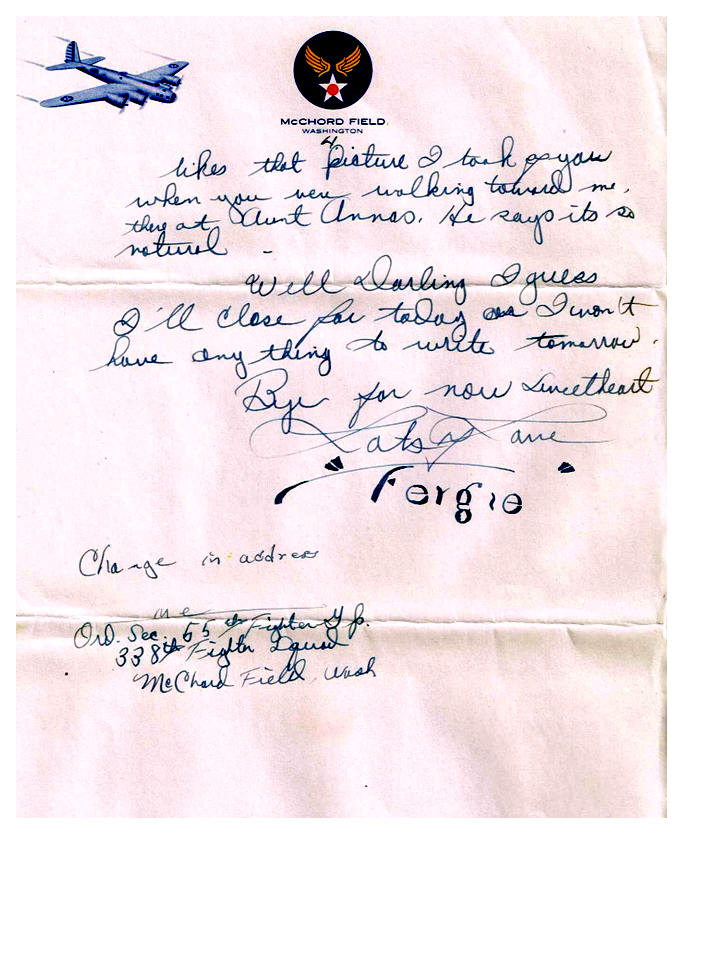 McCHORD FIELD
WASHINGTON
4
likes that picture I took of you
when you were walking toward me,
there at Aunt Annas. He says its so
natural -
Well Darling I guess
I'll close for today as I won't
have any thing to write tomorrow.
Bye for now Sweetheart
Lots of Love
Fergie
Change in address
me
Ord. Sec. 55th Fighter Gp.
338th Fighter Squad
McChord Field, Wash